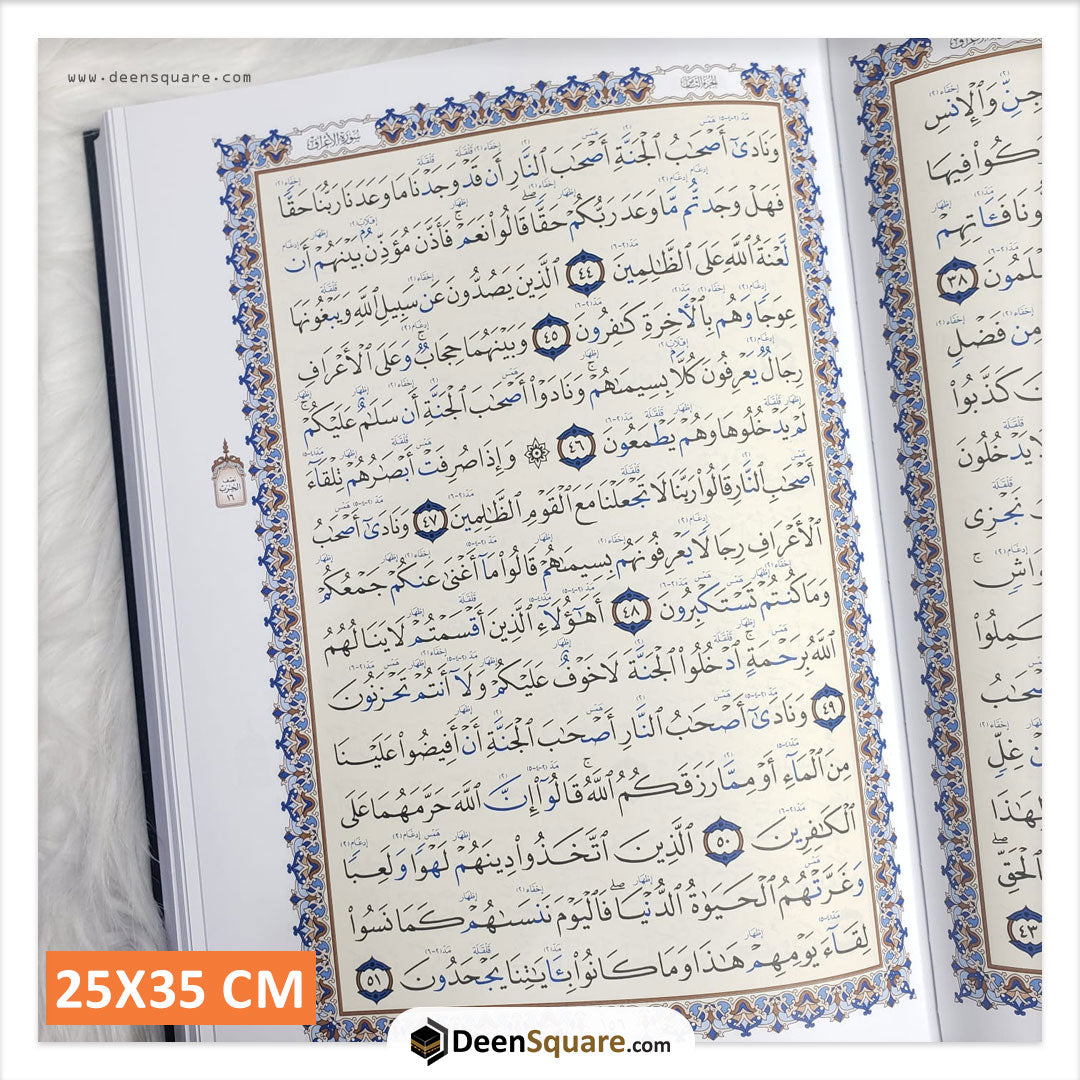 www.deensquare.com
سورة الأعراف
الجزء الثامن
وَنَادَىٰٓ أَصۡحَٰبُ ٱلۡجَنَّةِ أَصۡحَٰبَ ٱلنَّارِ أَن قَدۡ وَجَدۡنَا مَا وَعَدَنَا رَبُّنَا حَقّٗا
فَهَلۡ وَجَدتُّم مَّا وَعَدَ رَبُّكُمۡ حَقّٗاۖ قَالُواْ نَعَمۡۚ فَأَذَّنَ مُؤَذِّنُۢ بَيۡنَهُمۡ أَن
لَّعۡنَةُ ٱللَّهِ عَلَى ٱلظَّٰلِمِينَ ٤٤ ٱلَّذِينَ يَصُدُّونَ عَن سَبِيلِ ٱللَّهِ وَيَبۡغُونَهَا
عِوَجٗا وَهُم بِٱلۡأٓخِرَةِ كَٰفِرُونَ ٤٥ وَبَيۡنَهُمَا حِجَابٞۚ وَعَلَى ٱلۡأَعۡرَافِ
رِجَالٞ يَعۡرِفُونَ كُلَّۢا بِسِيمَىٰهُمۡۚ وَنَادَوۡاْ أَصۡحَٰبَ ٱلۡجَنَّةِ أَن سَلَٰمٌ عَلَيۡكُمۡۚ
لَمۡ يَدۡخُلُوهَا وَهُمۡ يَطۡمَعُونَ ٤٦ ۞ وَإِذَا صُرِفَتۡ أَبۡصَٰرُهُمۡ تِلۡقَآءَ
أَصۡحَٰبِ ٱلنَّارِ قَالُواْ رَبَّنَا لَا تَجۡعَلۡنَا مَعَ ٱلۡقَوۡمِ ٱلظَّٰلِمِينَ ٤٧ وَنَادَىٰٓ أَصۡحَٰبُ
ٱلۡأَعۡرَافِ رِجَالٗا يَعۡرِفُونَهُم بِسِيمَىٰهُمۡ قَالُواْ مَآ أَغۡنَىٰ عَنكُمۡ جَمۡعُكُمۡ
وَمَا كُنتُمۡ تَسۡتَكۡبِرُونَ ٤٨ أَهَٰٓؤُلَآءِ ٱلَّذِينَ أَقۡسَمۡتُمۡ لَا يَنَالُهُمُ
ٱللَّهُ بِرَحۡمَةٍۚ ٱدۡخُلُواْ ٱلۡجَنَّةَ لَا خَوۡفٌ عَلَيۡكُمۡ وَلَآ أَنتُمۡ تَحۡزَنُونَ
٤٩ وَنَادَىٰٓ أَصۡحَٰبُ ٱلنَّارِ أَصۡحَٰبَ ٱلۡجَنَّةِ أَنۡ أَفِيضُواْ عَلَيۡنَا
مِنَ ٱلۡمَآءِ أَوۡ مِمَّا رَزَقَكُمُ ٱللَّهُۚ قَالُوٓاْ إِنَّ ٱللَّهَ حَرَّمَهُمَا عَلَى
ٱلۡكَٰفِرِينَ ٥٠ ٱلَّذِينَ ٱتَّخَذُواْ دِينَهُمۡ لَهۡوٗا وَلَعِبٗا
وَغَرَّتۡهُمُ ٱلۡحَيَوٰةُ ٱلدُّنۡيَاۚ فَٱلۡيَوۡمَ نَنسَىٰهُمۡ كَمَا نَسُواْ
لِقَآءَ يَوۡمِهِمۡ هَٰذَا وَمَا كَانُواْ بِـَٔايَٰتِنَا يَجۡحَدُونَ ٥١
نصف
الحزب
١٦
جِنِّ وَٱلۡإِنسِ
كُواْ فِيهَا
٣٨
مِن فَضۡلٖ
كَذَّبُواْ
يَدۡخُلُونَ
نَجۡزِي
غِلّٖ
لِهَٰذَا
ٱلۡحَقِّۖ
٤٣
25X35 CM
DeenSquare.com